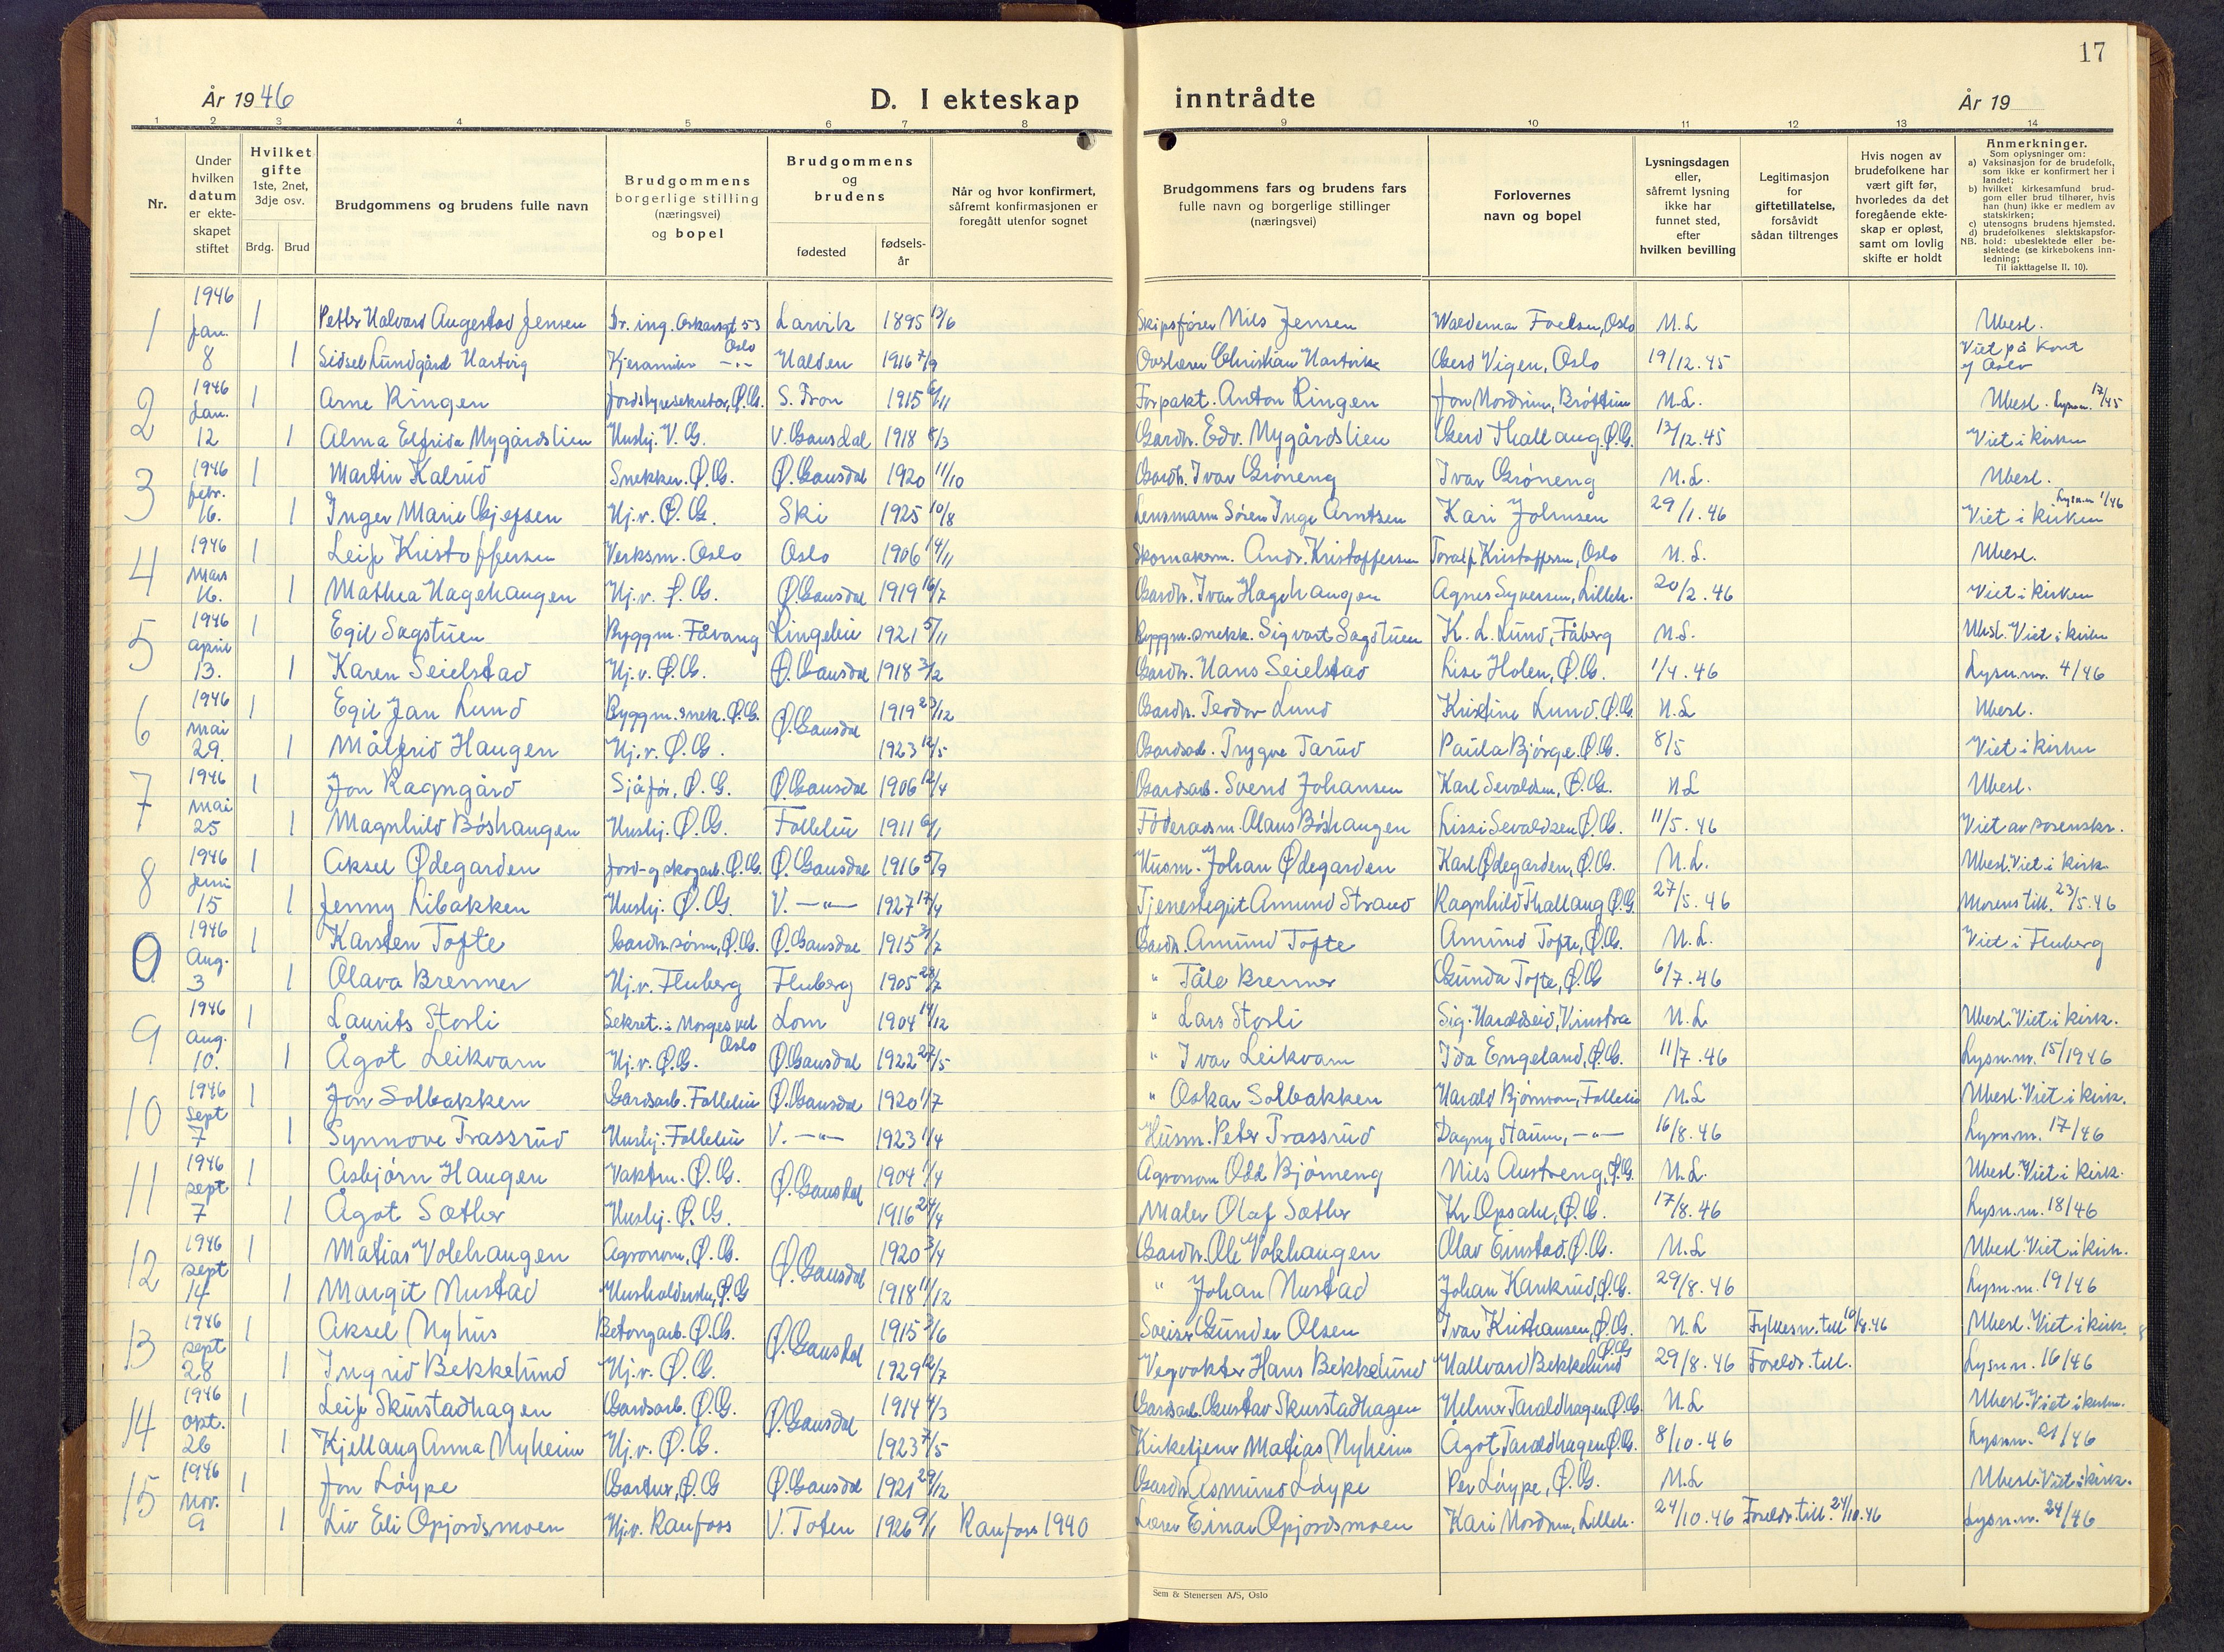 17
År 1946
D. I ekteskap
inntrådte
År 19
1 2 3 4 5 6 7 8 9 10 11 12 13 14
Nr.
Under hvilken datum er ekteskapet stiftet
Hvilket gifte 1ste, 2net, 3dje osv.
Brdg. Brud
Brudgommens og brudens fulle navn
Brudgommens borgerlige stilling (næringsvei) og bopel
Brudgommens og brudens
fødested
fødsels-år
Når og hvor konfirmert, såfremt konfirmasjonen er foregått utenfor sognet
Brudgommens fars og brudens fars fulle navn og borgerlige stillinger (næringsvei)
Forlovernes navn og bopel
Lysningsdagen eller, såfremt lysning ikke har funnet sted, efter hvilken bevilling
Legitimasjon for giftetillatelse, forsåvidt sådan tiltrenges
Hvis nogen av brudefolkene har vært gift før, hvorledes da det foregående ekteskap er opløst, samt om lovlig skifte er holdt
Anmerkninger.
Som oplysninger om:
a) Vaksinasjon for de brudefolk, som ikke er konfirmert her i landet;
b) hvilket kirkesamfund brudgom eller brud tilhører, hvis han (hun) ikke er medlem av statskirken;
c) utensogns brudens hjemsted.
d) brudefolkenes slektskapsfor-
NB. hold: ubeslektede eller beslektede (se kirkebokens innledning;
Til iakttagelse II. 10).
1 1946 Jan. 8 1 Petter Halvard Augestad Jensen Dr. ing. Oskarsgt 53 Oslo Larvik 1895 13/6 Skipsfører Nils Jensen Waldemar Foelsen, Oslo N.L Ubesl.
1 Sidsel Lundgård Hartvig -"- Halden 1916 7/9 Christian Hartvig Gerd Vigen, Oslo 19/12.45 Viet på kont
2 1946 Jan. 12 1 Arne Ringen Jordstyresekretær, Ø.G. S. Fron 1915 6/11 Forpakt. Anton Ringen Jon Nordrum, Brøttum N.L. Ubesl. Lysn.n. 17/45
1 Alma Elfrida Nygårdslien Hushj. V.G. V. Gausdal 1918 8/3 Gardbr. Edv. Nygårdslien Gerd Thallaug. Ø.G. 13/12.45 Viet i kirken
3 1946 febr. 16. 1 Martin Kalrud Snekker. Ø.G. Ø. Gausdal 1920 11/10 Gardbr. Ivar Grøneng Ivar Grøneng N.L. Ubesl.
1 Inger Marie Gjefsen Hj.v. Ø.G. Ski 1925 10/8 Lensmann Søren Inge Arntsen Kari Johnsen 29/1.46 Viet i kirken Lysn.n 1/46
4 1946 Mars 16. 1 Leif Kristoffersen Verksm. Oslo Oslo 1906 14/11 Skomakerm. Andr. Kristoffersen Toralf Kristoffersen, Oslo N.L. Ubesl.
1 Mathea Hagehaugen Hj.v. Ø.G. Ø. Gausdal 1919 16/7 Gardbr. Ivar Hagehaugen Agnes Syversen, Lilleh. 20/2.46 Viet i kirken
5 1946 april 13. 1 Egil Sagstuen Byggm. Fåvang Ringebu 1921 5/11 Byggm.snekk. Sigvart Sagstuen K. L. Lund, Fåberg N.L. Ubesl. Viet i kirken
1 Karen Seielstad Hj.v. Ø.G. Ø. Gausdal 1918 3/2 Gardbr. Hans Seielstad Lise Holen, Ø.G. 1/4.46 Lysn.nr. 4/46
6 1946 mai 29. 1 Egil Jan Lund Byggm. snek. Ø.G. Ø. Gausdal 1919 23/12 Gardbr. Teodor Lund Kristine Lund. Ø.G. N.L Ubesl.
1 Målfrid Haugen Hj.v. Ø.G. 1923 12/5 Gardsarb. Trygve Tarud Paula Bjørge. Ø.G. 8/5 Viet i kirken
7 1946 mai 25 1 Jon Kaggsgård Sjåfør, Ø.G. Ø. Gausdal 1906 12/4 Gardsarb. Svend Johansen Karl Sevaldsen, Ø.G. N.L Ubesl.
1 Magnhild Bøshaugen Hushj. Ø.G. Follebu 1911 6/1 Føderaadsm. Olaus Bøshaugen Lissi Sevaldsen Ø.G. 11/5.46 Viet av sorenskr.
8 1946 juni 15 1 Aksel Ødegarden Jord- og skogarb. Ø.G. Ø. Gausdal 1916 5/9 Husm. Johan Ødegarden Karl Ødegarden, Ø.G. N.L. Ubesl. Viet i kirk.
1 Jenny Libakken Hushj. Ø.G. V. -"- 1927 17/4 Tjenestegut Amund Strand Ragnhild Thallaug Ø.G. 27/5.46 Morens till. 23/5.46
0 1946 Aug. 3 1 Karsten Tofte Gardbr.sønn, Ø.G. Ø. Gausdal 1915 31/7 Gardbr. Amund Tofte Amund Tofte, Ø.G. N.L. Viet i Fluberg
1 Olava Brenner Hj.v. Fluberg Fluberg 1905 28/7 " Tåle Brenner Gunda Tofte, Ø.G 6/7.46
9 1946 Aug. 10. 1 Laurits Storli Sekret. i Norges vel Oslo Lom 1904 14/12 " Lars Storli Sig. Haraldseid, Vinstra N.L Ubesl. Viet i kirk.
1 Ågot Leikvam Hj.v. Ø.G. Ø. Gausdal 1922 27/5 " Ivar Leikvam Ida Engeland, Ø.G. 11/7.46 Lysn.nr. 15/1946
10 1946 Sept 7 1 Jon Solbakken Gardsarb. Follebu Ø. Gausdal 1920 1/7 " Oskar Solbakken Harald Bjørnson, Follebu N.L Ubesl. Viet i kirk.
1 Synnøve Trassrud Hushj. Follebu V. -"- 1923 1/4 Husm. Peter Trassrud Dagny Staum, -"- 16/8.46 Lysn.nr. 17/46
11 1946 sept 7 1 Asbjørn Haugen Vaktm. Ø.G. Ø. Gausdal 1904 1/4 Agronom Odd Bjørneng Nils Austreng, Ø.G. N.L. Ubesl. Viet i kirk.
1 Ågot Sæther Hushj. Ø.G. 1916 24/4 Maler Olaf Sæther Kr. Opsahl, Ø.G. 17/8.46 Lysn.nr. 18/46
12 1946 sept 14 1 Matias Volehaugen Agronom, Ø.G. Ø. Gausdal 1920 3/4 Gardbr. Ole Volehaugen Olav Einstad, Ø.G. N.L Ubesl. Viet i kirk.
1 Margit Nustad Husholderske, Ø.G 1918 11/12 " Johan Nustad Johan Kankrud, Ø.G. 29/8.46 Lysn.nr. 19/46
13 1946 sept 28 1 Aksel Nyhus Betongarb. Ø.G. Ø. Gausdal 1915 3/6 Sveiser Gunder Olsen Ivar Kristiansen, Ø.G. N.L Fylkesm. till 19/8.46 Ubesl. Viet i kirk.
1 Ingrid Bekkelund Hj.v. Ø.G. 1929 12/7 Vegvokter Hans Bekkelund Hallvard Bekkelund Ø.G 29/8.46 Foreldr. till. Lysn.n. 16/46
14 1946 okt. 26 1 Leif Skurstadhagen Gardsarb. Ø.G. Ø. Gausdal 1914 4/3 Gardsarb. Gustav Skurstadhagen Helmer Taraldhagen Ø.G. N.L Ubesl. Viet i kirken.
1 Kjellaug Anna Nyheim Hj.v. Ø.G. 1923 7/5 Kirketjener Matias Nyheim Ågot Taraldhagen Ø.G. 8/10.46 Lysn.n. 21/46
15 1946 Nov. 9 1 Jon Løype Gartner, Ø.G Ø. Gausdal 1921 29/12 Gardbr. Asmund Løype Per Løype, Ø.G. N.L Ubesl. Viet i kirk.
1 Liv Eli Opjordsmoen Hj.v. Raufoss V. Toten 1926 9/1 Raufoss 1940 Lærer Einar Opjordsmoen Kari Nordrum, Lilleh. 24/10.46 Foreldr. till. 24/10.46 Lysn.nr. 24/46
Sem & Stenersen A/S, Oslo